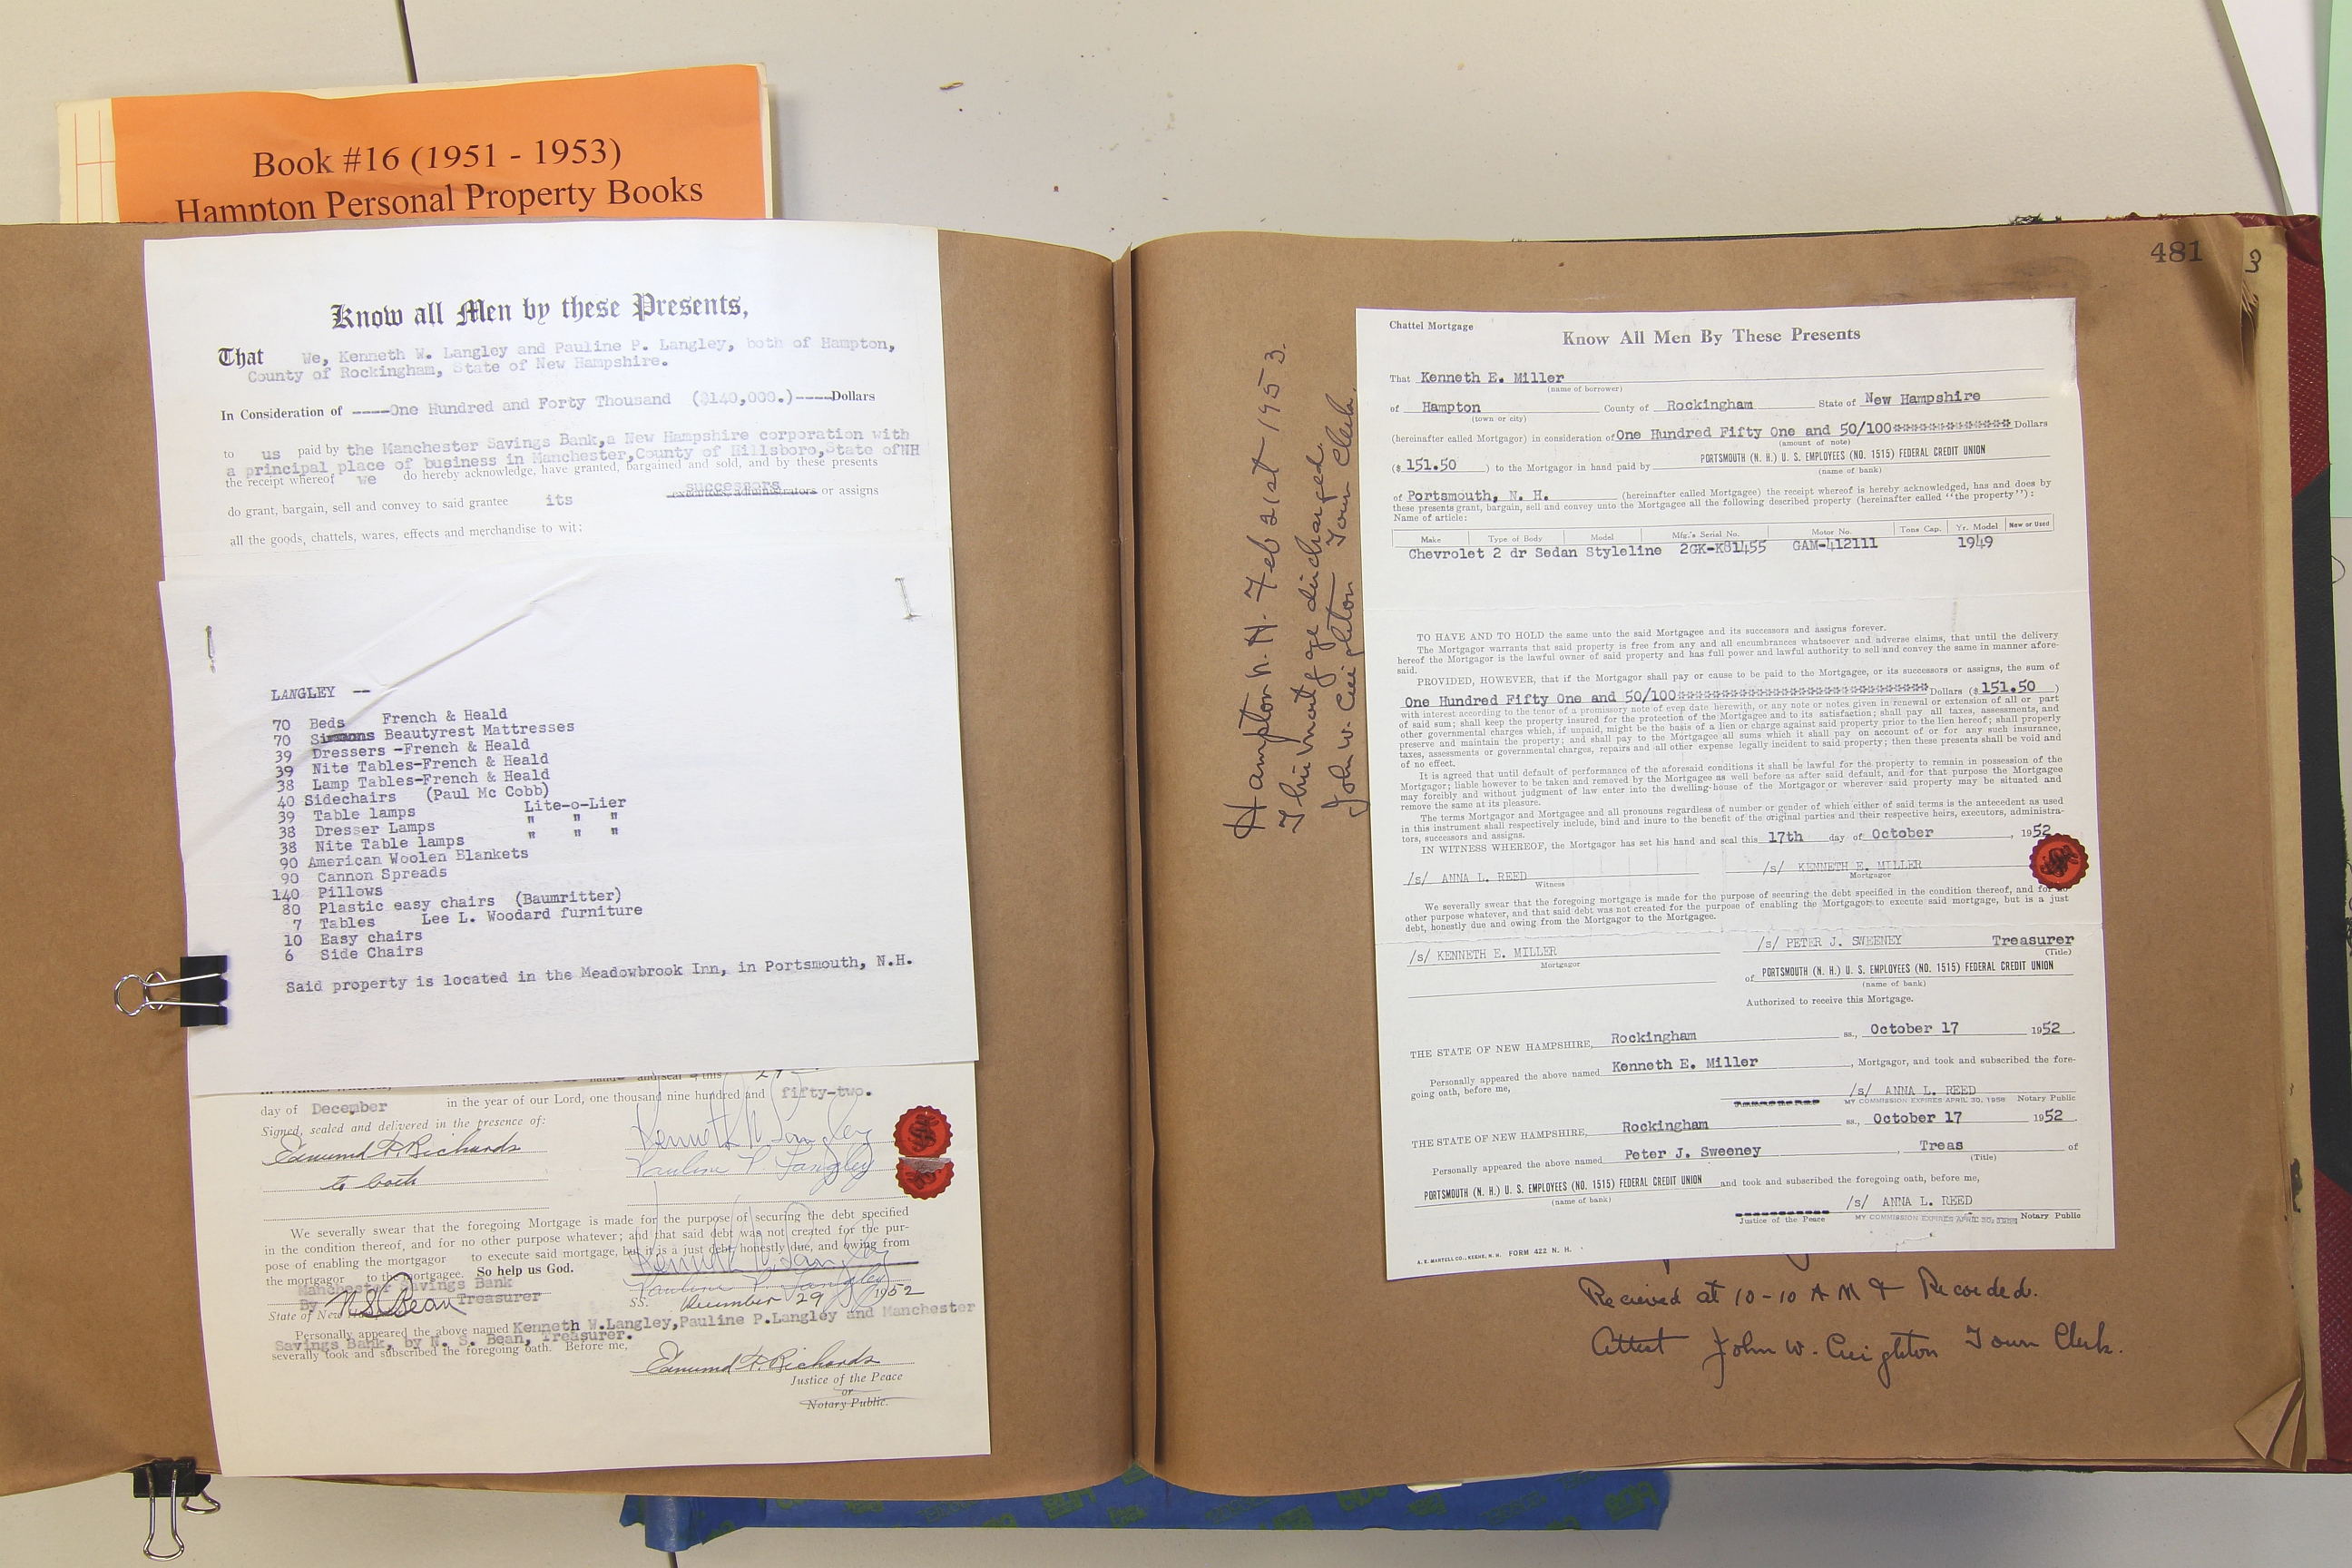 Book #16 (1951 - 1953)
Hampton Personal Property Books
Know all Men by these Presents,
That We, Kenneth W. Langley and Pauline P. Langley, both of Hampton,
County of Rockingham, State of New Hampshire.
In Consideration of ----One Hundred and Forty Thousand ($140,000.)----Dollars
to us paid by the Manchester Savings Bank,a New Hampshire corporation with
a principal place of business in Manchester,County of Hillsboro,State ofNH
the receipt whereof we do hereby acknowledge, have granted, bargained and sold, and by these presents
successors
do grant, bargain, sell and convey to said grantee its executors, administrators or assigns
all the goods, chattels, wares, effects and merchandise to wit:
LANGLEY --
70 Beds French & Heald
70 Simmons Beautyrest Mattresses
39 Dressers -French & Heald
39 Nite Tables-French & Heald
38 Lamp Tables-French & Heald
40 Sidechairs (Paul Mc Cobb)
39 Table lamps Lite-o-Lier
38 Dresser Lamps " " "
38 Nite Table lamps " " "
90 American Woolen Blankets
90 Cannon Spreads
140 Pillows
80 Plastic easy chairs (Baumritter)
7 Tables Lee L. Woodard furniture
10 Easy chairs
6 Side Chairs
Said property is located in the Meadowbrook Inn, in Portsmouth, N.H.
and seal this
day of December in the year of our Lord, one thousand nine hundred and fifty-two.
Signed, sealed and delivered in the presence of:
Edmund F. Richards Kenneth W. Langley
to both Pauline P. Langley
We severally swear that the foregoing Mortgage is made for the purpose of securing the debt specified
in the condition thereof, and for no other purpose whatever; and that said debt was not created for the pur-
pose of enabling the mortgagor to execute said mortgage, but it is a just debt honestly due, and owing from
the mortgagor to the mortgagee. So help us God. Kenneth W. Langley
Manchester Savings Bank Pauline P. Langley
By N. S. Bean Treasurer
State of New SS. December 29 1952
Personally appeared the above named Kenneth W.Langley,Pauline P.Langley and Manchester
Savings Bank, by N. S. Bean, Treasurer.
severally took and subscribed the foregoing oath. Before me,
Edmund F. Richards
Justice of the Peace
or
Notary Public.
481
3
Hampton N. H. Feb 21st 1953.
This mortgage discharged.
John W. Creighton Town Clerk.
Chattel Mortgage
Know All Men By These Presents
That Kenneth E. Miller
(name of borrower)
of Hampton County of Rockingham State of New Hampshire
(town or city)
(hereinafter called Mortgagor) in consideration of One Hundred Fifty One and 50/100************** Dollars
(amount of note)
($ 151.50 ) to the Mortgagor in hand paid by PORTSMOUTH (N. H.) U. S. EMPLOYEES (NO. 1515) FEDERAL CREDIT UNION
(name of bank)
of Portsmouth, N. H. (hereinafter called Mortgagee) the receipt whereof is hereby acknowledged, has and does by
these presents grant, bargain, sell and convey unto the Mortgagee all the following described property (hereinafter called "the property"):
Name of article:
Make Type of Body Model Mfg.'s Serial No. Motor No. Tons Cap. Yr. Model New or Used
Chevrolet 2 dr Sedan Styleline 2GK-K81455 GAM-412111 1949
TO HAVE AND TO HOLD the same unto the said Mortgagee and its successors and assigns forever.
The Mortgagor warrants that said property is free from any and all encumbrances whatsoever and adverse claims, that until the delivery
hereof the Mortgagor is the lawful owner of said property and has full power and lawful authority to sell and convey the same in manner afore-
said.
PROVIDED, HOWEVER, that if the Mortgagor shall pay or cause to be paid to the Mortgagee, or its successors or assigns, the sum of
One Hundred Fifty One and 50/100****************************** Dollars ($ 151.50 )
with interest according to the tenor of a promissory note of even date herewith, or any note or notes given in renewal or extension of all or part
of said sum; shall keep the property insured for the protection of the Mortgagee and to its satisfaction; shall pay all taxes, assessments, and
other governmental charges which, if unpaid, might be the basis of a lien or charge against said property prior to the lien hereof; shall properly
preserve and maintain the property; and shall pay to the Mortgagee all sums which it shall pay on account of or for any such insurance,
taxes, assessments or governmental charges, repairs and all other expense legally incident to said property; then these presents shall be void and
of no effect.
It is agreed that until default of performance of the aforesaid conditions it shall be lawful for the property to remain in possession of the
Mortgagor; liable however to be taken and removed by the Mortgagee as well before as after said default, and for that purpose the Mortgagee
may forcibly and without judgment of law enter into the dwelling-house of the Mortgagor or wherever said property may be situated and
remove the same at its pleasure.
The terms Mortgagor and Mortgagee and all pronouns regardless of number or gender of which either of said terms is the antecedent as used
in this instrument shall respectively include, bind and inure to the benefit of the original parties and their respective heirs, executors, administra-
tors, successors and assigns.
IN WITNESS WHEREOF, the Mortgagor has set his hand and seal this 17th day of October , 1952
/s/ ANNA L. REED /s/ KENNETH E. MILLER
Witness Mortgagor
We severally swear that the foregoing mortgage is made for the purpose of securing the debt specified in the condition thereof, and for no
other purpose whatever, and that said debt was not created for the purpose of enabling the Mortgagor to execute said mortgage, but is a just
debt, honestly due and owing from the Mortgagor to the Mortgagee.
/s/ KENNETH E. MILLER /s/ PETER J. SWEENEY Treasurer
Mortgagor (Title)
of PORTSMOUTH (N. H.) U. S. EMPLOYEES (NO. 1515) FEDERAL CREDIT UNION
(name of bank)
Authorized to receive this Mortgage.
THE STATE OF NEW HAMPSHIRE, Rockingham ss., October 17 1952 .
Personally appeared the above named Kenneth E. Miller , Mortgagor, and took and subscribed the fore-
going oath, before me,
/s/ ANNA L. REED
MY COMMISSION EXPIRES APRIL 30, 1956 Notary Public
THE STATE OF NEW HAMPSHIRE, Rockingham ss., October 17 1952 .
Personally appeared the above named Peter J. Sweeney , Treas of
(Title)
PORTSMOUTH (N. H.) U. S. EMPLOYEES (NO. 1515) FEDERAL CREDIT UNION and took and subscribed the foregoing oath, before me,
(name of bank)
/s/ ANNA L. REED
Justice of the Peace MY COMMISSION EXPIRES APRIL 30, Notary Public
A. E. MARTELL CO., KEENE, N. H. FORM 422 N. H.
Recieved at 10-10 A M & Recorded.
Attest John W. Creighton Town Clerk.